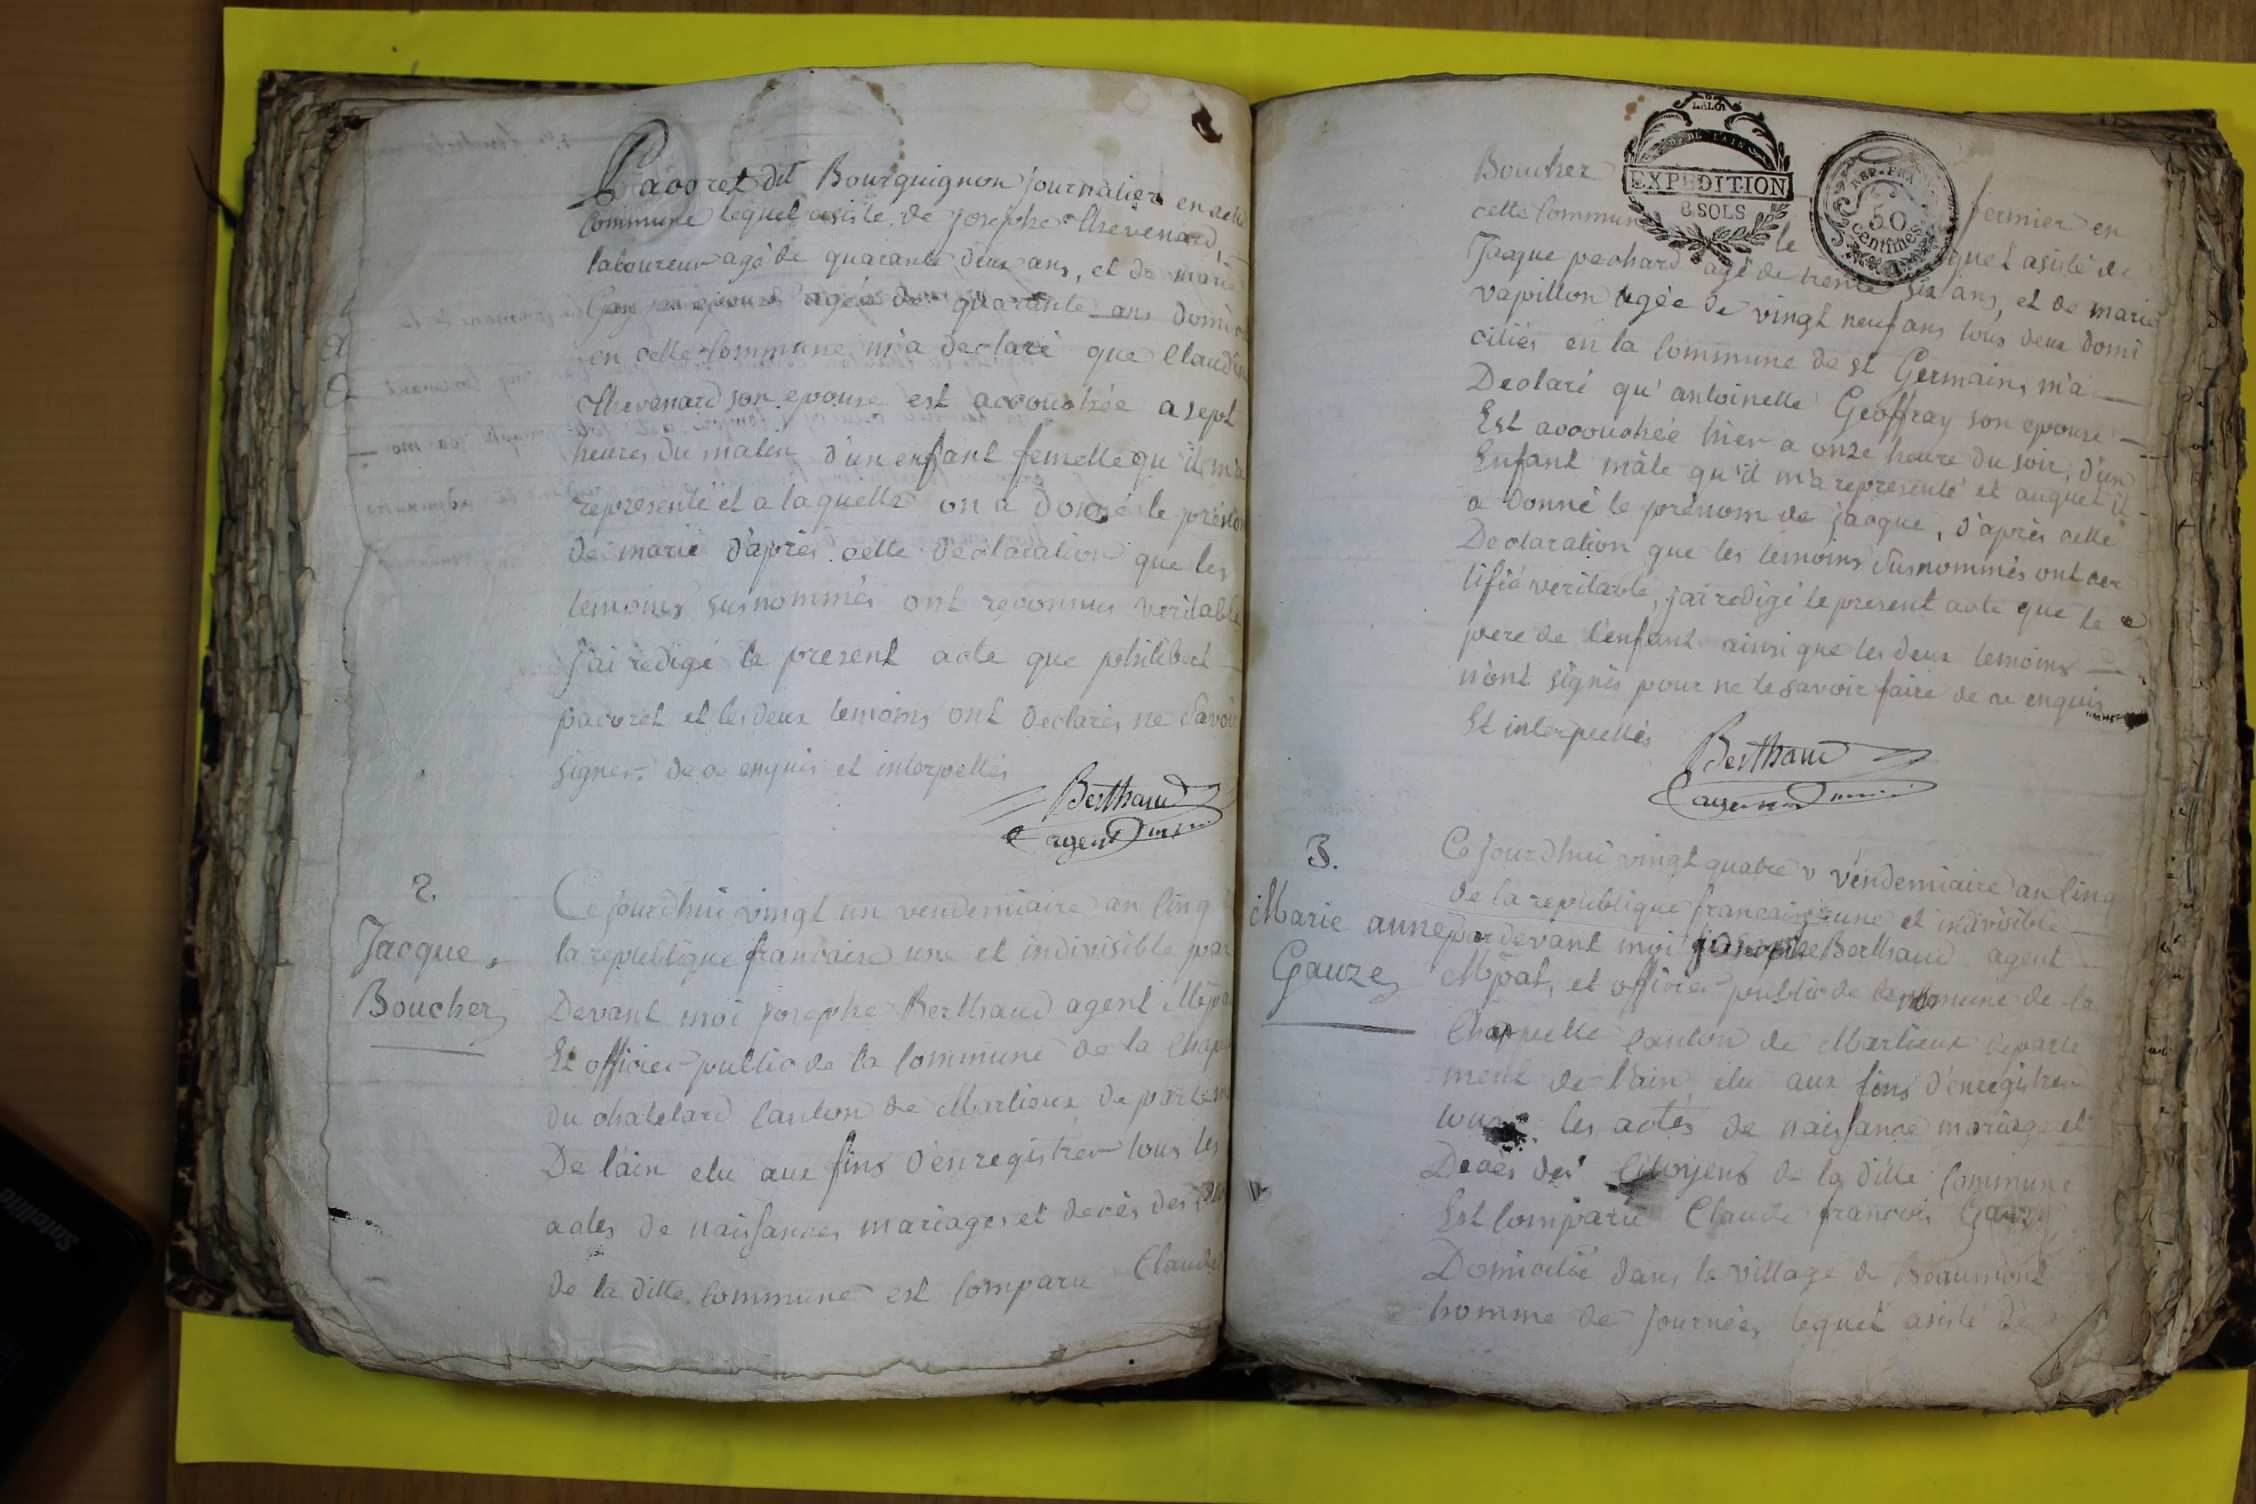 Pacoret dit Bourguignon journalier en cette
Commune lequel asisté de josephe thevenard,
laboureur agé de quarante deux ans, et de marie
Gay son epouse agée de quarante ans domici
en cette Commune m'a declaré que Claudine
thevenard son epouse est accouchée a sept
heures du matin d'un enfant femelle qu'il m'a
representé et a laquelle on a donné le prénom
de marie d'après cette declaration que les
temoins susnommés ont reconnus veritable
j'ai redigé le present acte que philibert
pacoret et les deux temoins ont declarés ne savoir
signer de ce enquis et interpellés
Berthaud
agent
2.
Jacque
Boucher
Ce jourdhui vingt un vendemiaire an Cinq
la republique francaise une et indivisible par
Devant moi josephe Berthaud agent Mpal
Et officier public de la Commune de la Chape
du chatelard Canton de Marlieux departem
De l'ain elu aux fins d'enregistrer tous les
actes de naissances mariages et decès des
de la ditte Commune est Comparu Claude
LA LOI
DE L'AIN
EXPEDITION
8 SOLS
REP. FRA
50
centimes
Boucher fermier en
cette Commune lequel asisté de
Jacque pechard agé de trente six ans, et de marie
vapillon agée de vingt neuf ans tous deux domi
ciliés en la Commune de St Germain, m'a
Declaré qu'antoinette Geoffray son epouse
Est accouchée hier a onze heure du soir, d'un
Enfant mâle qu'il m'a representé et auquel il
a donné le prénom de jacque, d'après cette
Declaration que les temoins susnommés ont cer
tifié veritable, j'ai redigé le present acte que le
pere de l'enfant ainsi que les deux temoins
n'ont signés pour ne le savoir faire de ce enquis
Et interpellés
Berthaud
agent
3.
Marie anne
Gauze
Ce jourdhui vingt quatre vendemiaire an Cinq
de la republique francaise une et indivisible
pardevant moi josephe Berthaud agent
Mpal, et officier public de la Commune de la
Chappelle Canton de Marlieux departe
ment de l'ain elu aux fins d'enregistrer
tous les actes de naissance mariage et
Decès des Citoyens de la ditte Commune
Est Comparu Claude francois Gauze
Domicilié dans le village de Beaumont
homme de journées lequel asisté de